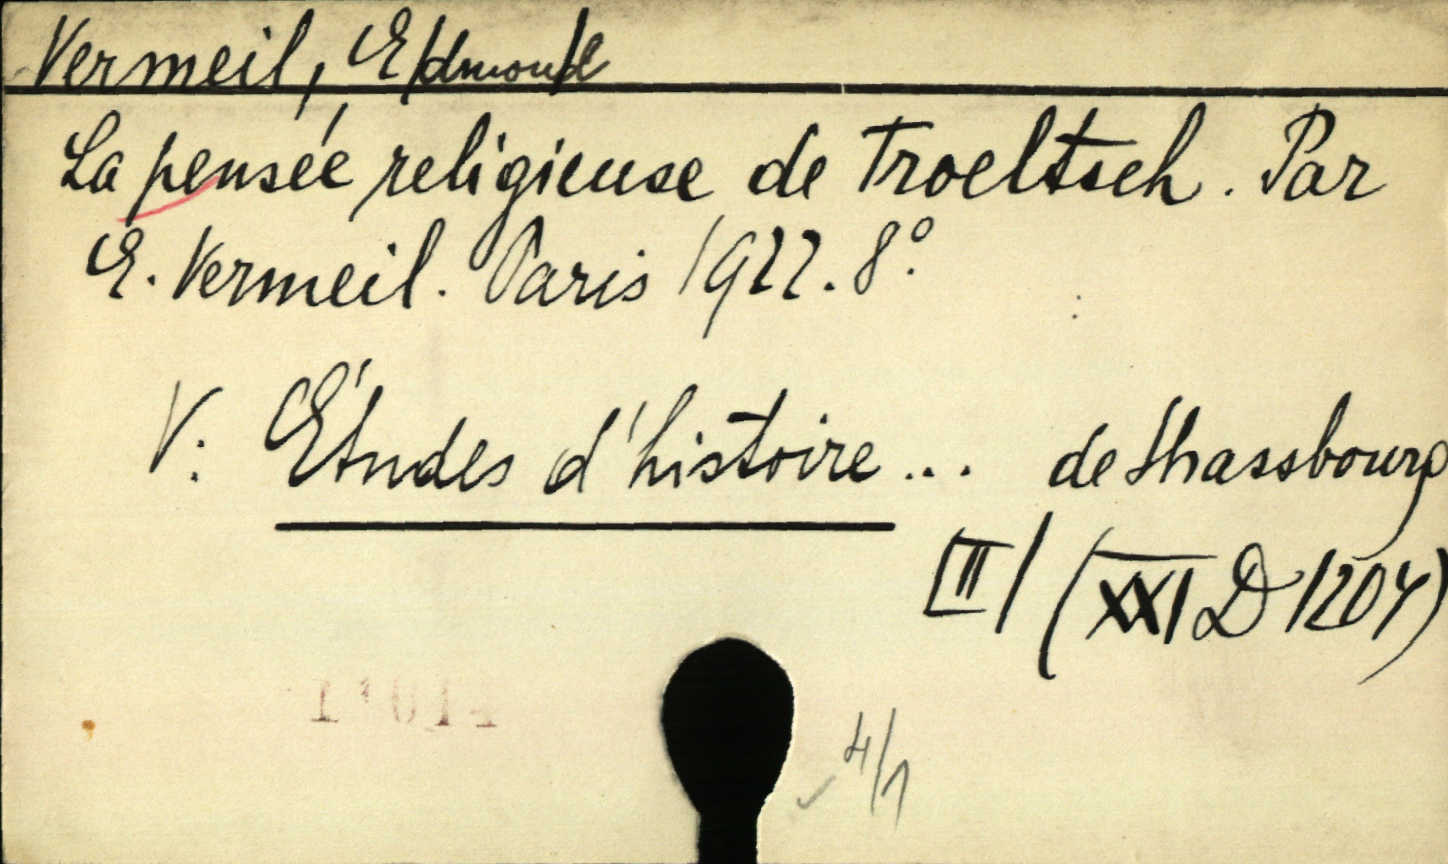 Vermeil, E/dmond/
La pensée religieuse de Troeltsch. Par
E. Vermeil. Paris 1922. 8°.
V: Études d'histoire... de Strassbourg
III / (XXI D 1204)
4/1